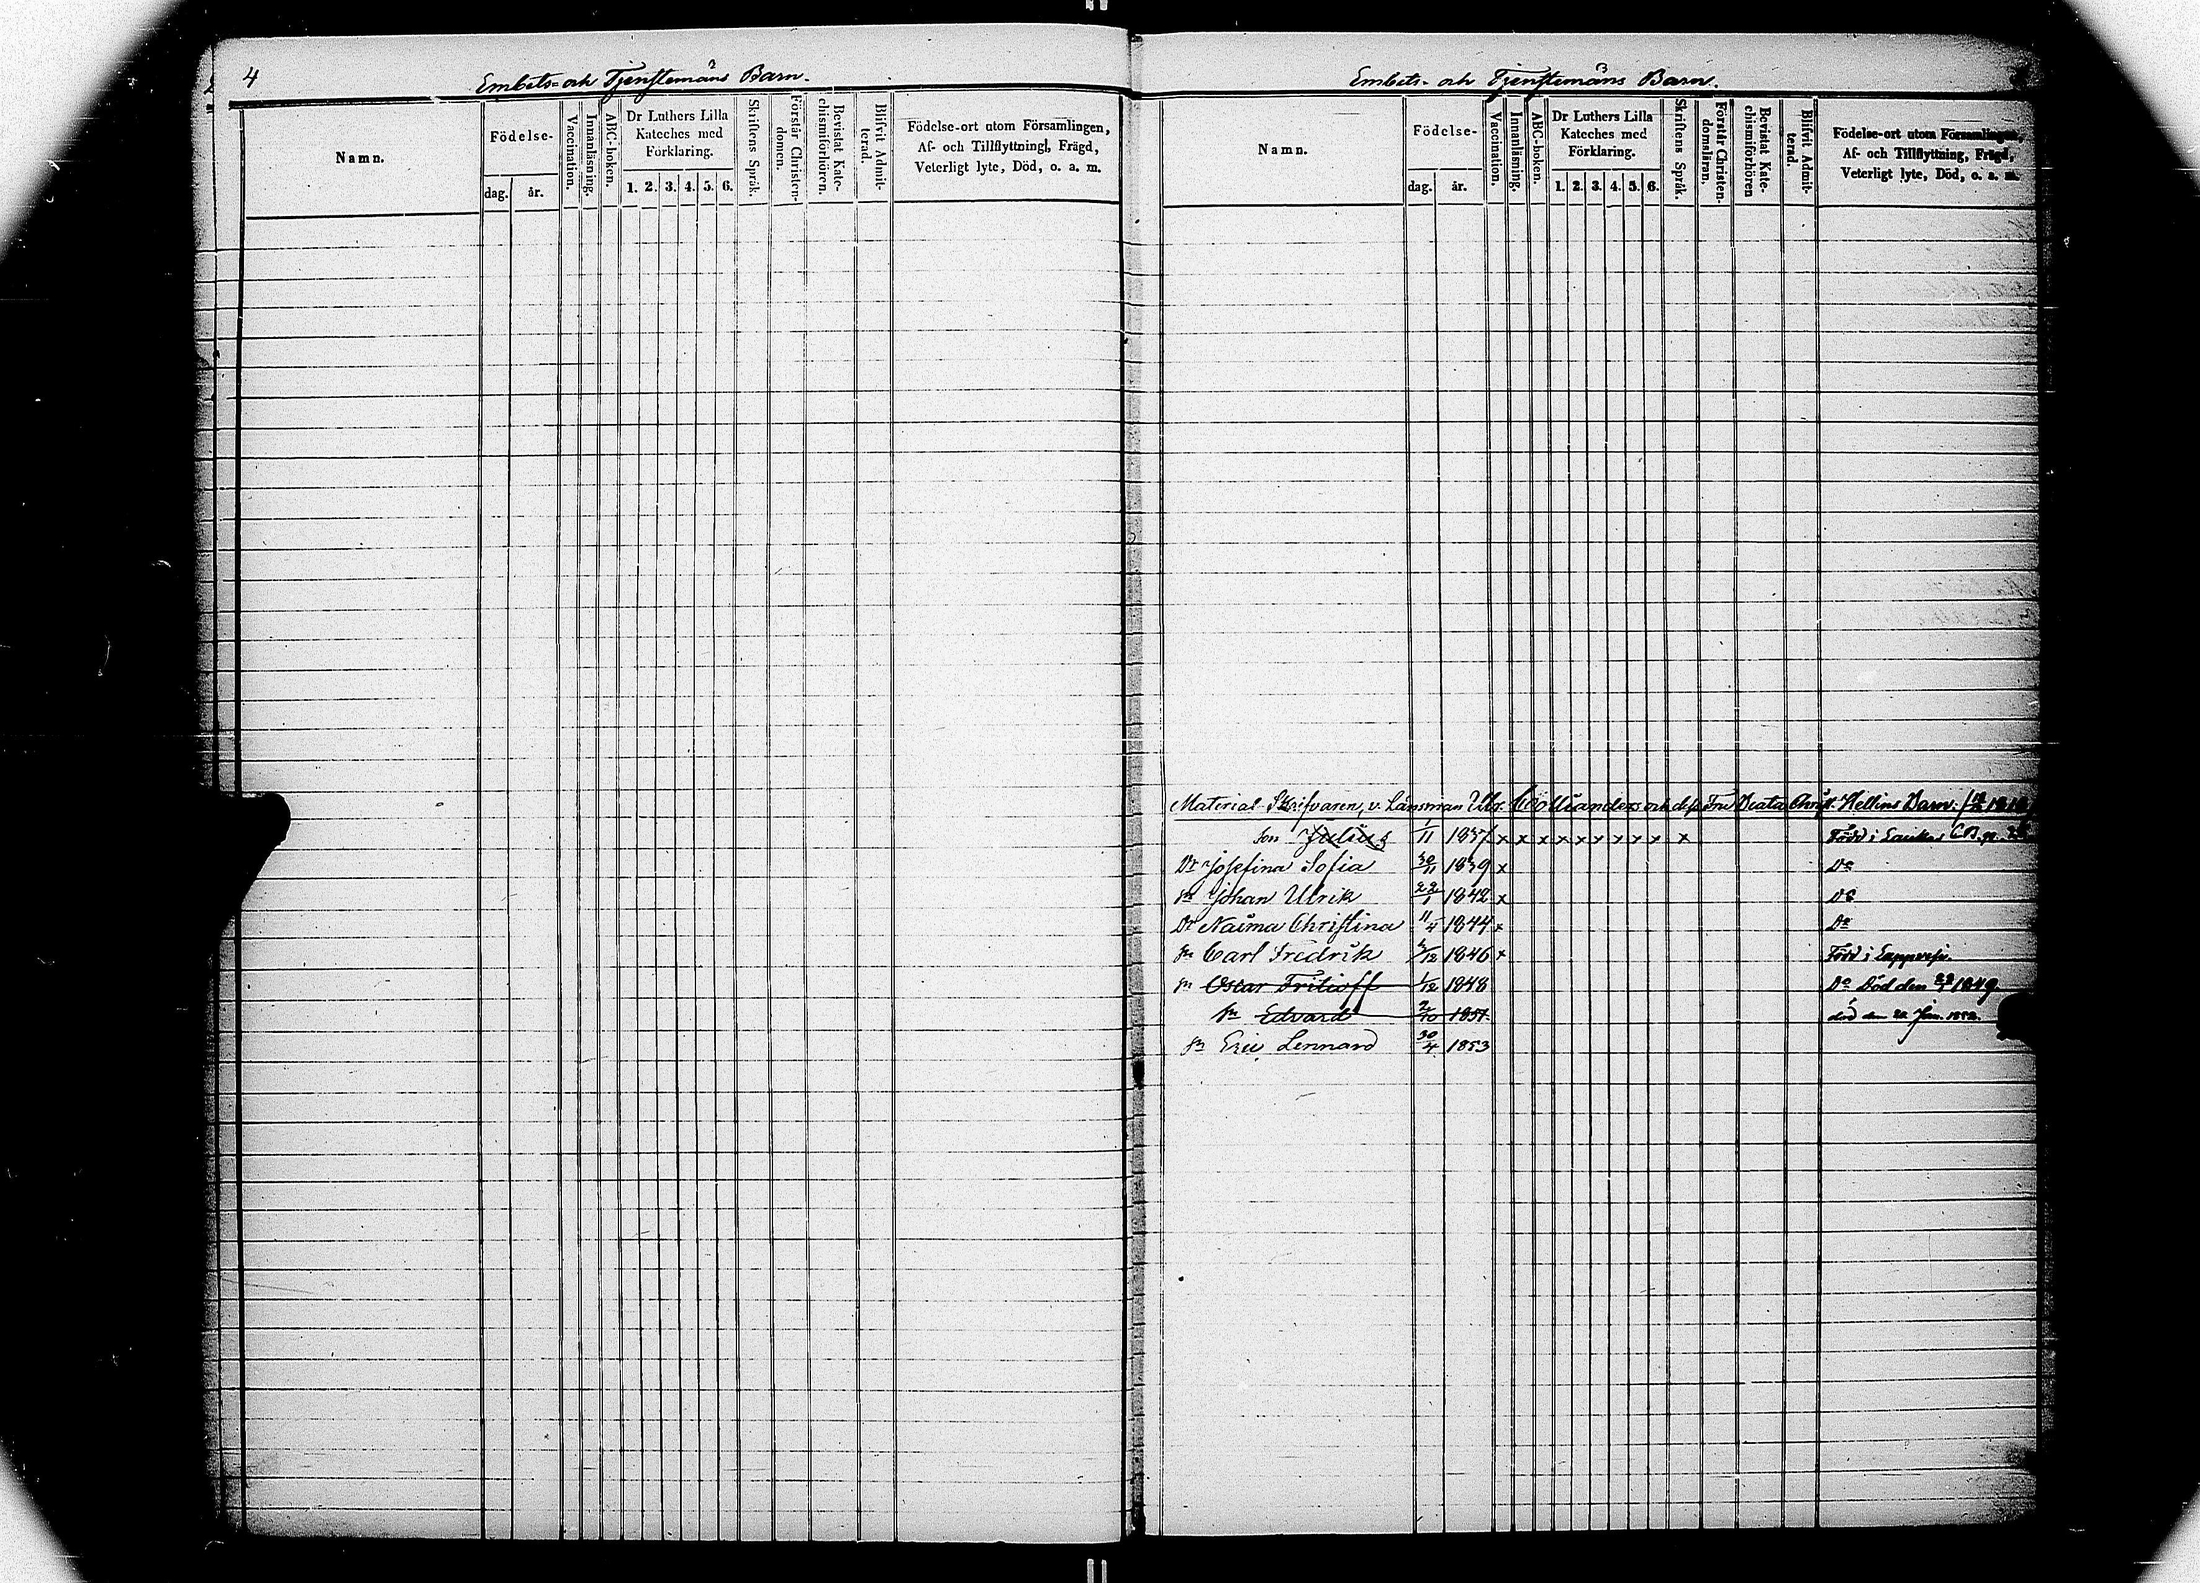 4
Embets- och Tjenstemäns Barn.
Namn.
Födelse-
dag. år.
Vaccination.
Innanläsning.
ABC-boken.
Dr Luthers Lilla
Kateches med
Förklaring.
1. 2. 3. 4. 5. 6.
Skriftens Språk.
Förstår Christen-
domen.
Bevistat Kate-
chismiförhören.
Blifvit Admit-
terad.
Födelse-ort utom Församlingen,
Af- och Tillflyttningl, Frägd,
Veterligt lyte, Död, o. a. m.
Embets- och Tjenstemäns Barn.
Namn.
Födelse-
dag. år.
Vaccination.
Innanläsning.
ABC-boken.
Dr Luthers Lilla
Kateches med
Förklaring.
1. 2. 3. 4. 5. 6.
Skriftens Språk.
Förstår Christen-
domsläran.
Bevistat Kate-
chismiförhören
Blifvit Admit-
terad.
Födelse-ort utom Församlingen,
Af- och Tillflyttning, Frägd,
Veterligt lyte, Död, o. a. m.
Material-Skrifvaren, v. Länsman Ulr. Collianders och dess Fru Beata Christ. Hellins Barn.
Son Julius 1/11 1837 x x x x x x x x x x Född i Laukas CB. p.
Dr Josefina Sofia 30/11 1839 x Do
Sn Johan Ulrik 22/1 1842 x Do
Dr Naima Christina 11/4 1844 x Do
Sn Carl Fredrik /12 1846 x Född i Lappvesi.
Sn Oscar Fritioff 1/12 1848 Do Död den 1849.
Sn Edvard 2/10 1851. död den 22 Jan. 1852.
Sn Eric Lennard 30/4 1853